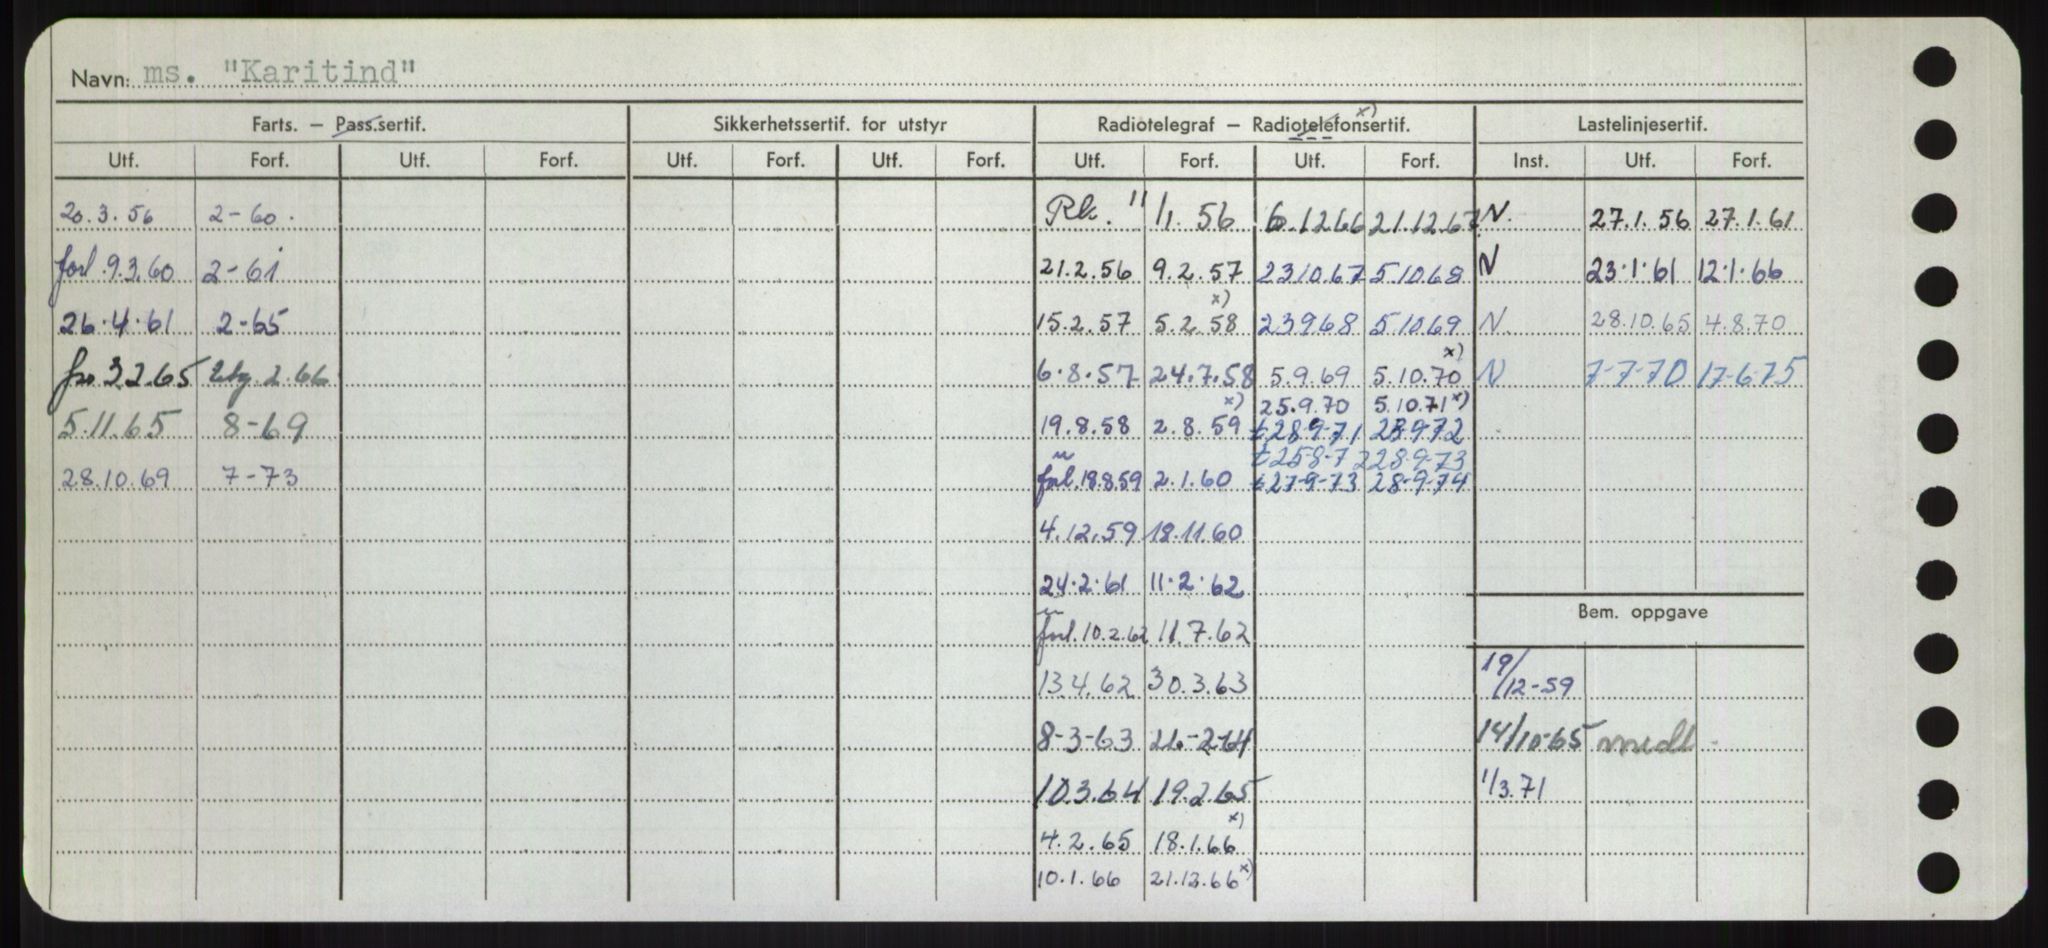 Navn: ms. "Karitind"
Farts. – Pass.sertif. Sikkerhetssertif. for utstyr Radiotelegraf – Radiotelefonsertif. x) Lastelinjesertif.
Utf. Forf. Utf. Forf. Utf. Forf. Utf. Forf. Utf. Forf. Utf. Forf. Inst. Utf. Forf.
20.3.56 2-60. Rk. 11/1. 56 6.1266 21.12.67 N. 27.1.56 27.1.61
forl. 9.3.60 2-61 21.2.56 9.2.57 23.10.67 5.10.68 N 23.1.61 12.1.66
26.4.61 2-65 15.2.57 5.2.58 x) 23968 5.1069 N. 28.10.65 4.8.70
3265 2.66 6.8.57 24.7.58 5.9.69 5.10.70 x) N 7-7-70 17-6-75
25.9.70 5.10.71 x)
5.11.65 8-69 19.8.58 2.8.59 x) t 28-9-71 28-9-72
t 25-8-72 28-9-73
28.10.69 7-73 forl. 18.8.59 2.1.60 t 27-9-73 28-9-74
4.12.59 18.11.60
24.2.61 11.2.62
Bem. oppgave
forl. 10.2.62 11.7.62
13.4.62 30.3.63 19/12-59
8-3-63 26-2-64 14/10-65 medl.
10.3.64 19.2.65 1/3.71
4.2.65 18.1.66 x)
10.1.66 21.12.66 x)